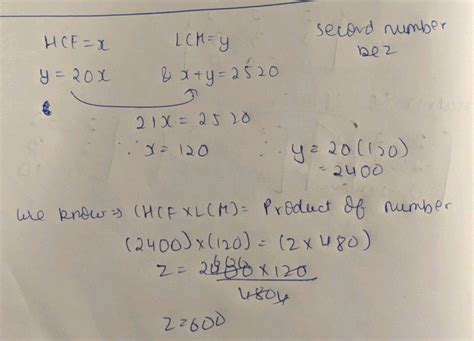 HCF = x LCM = y second number
be z
y = 20x & x+y = 2520
21x = 2520
∴ x = 120 ∴ y = 20(120)
= 2400
we know ⇒ (HCF x LCM) = Product of number
(2400) x (120) = (z x 480)
z = 2400 x 120
480
z = 600